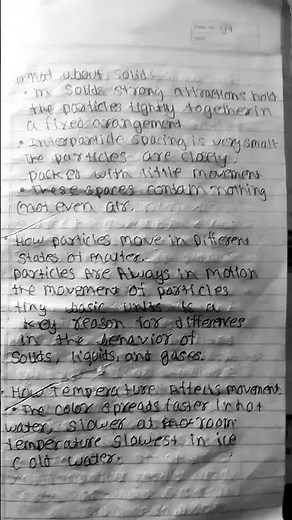 not about solids
• in solids strong attractions hold
the particles tightly together in
a fixed arrangement
• Interparticle spacing is very small
the particles are closely
packed with little movement
• These spaces contain nothing
(not even air.
How particles move in Different
States of matter.
particles Are Always in motion
the movement of particles
tiny basic units is a
key reason for differences
in the behavior of
Solids, liquids, and gases.
• How Temperature Affects movement
• The color spreads faster in hot
water, slower at room
temperature slowest in ice
cold water.